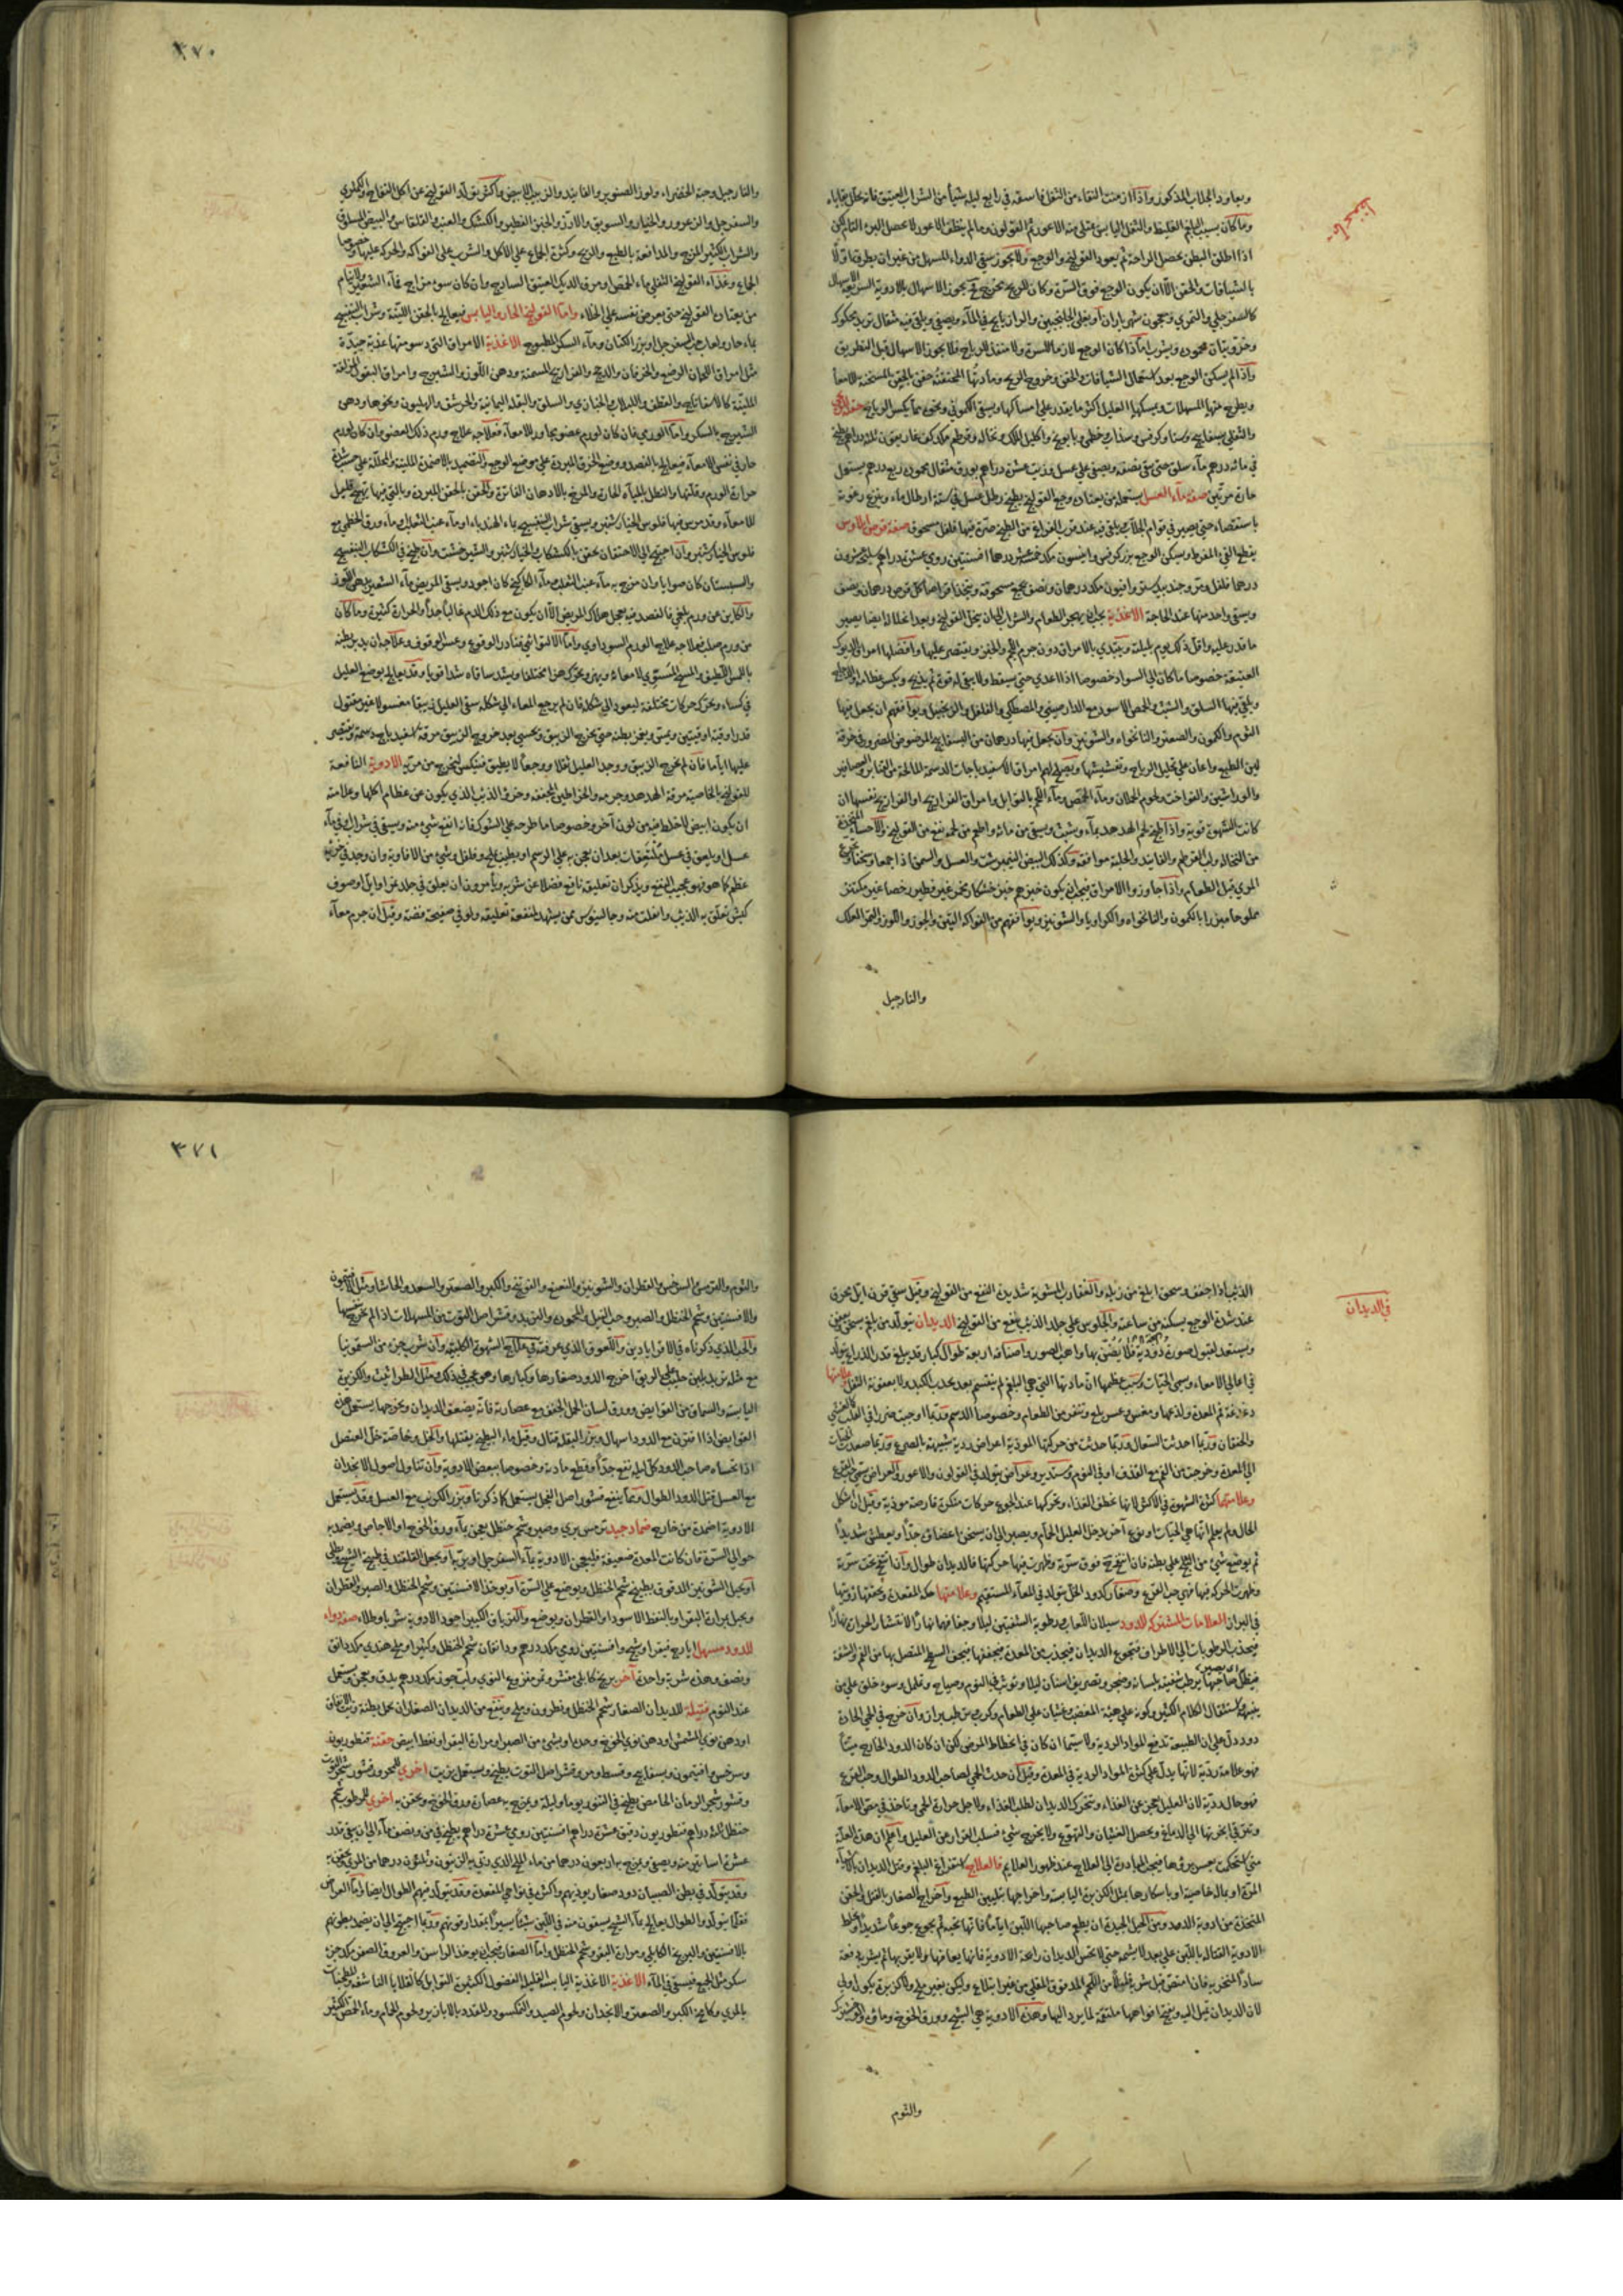 ويعاود الجلاب المذكور واذا ازمنت النقاء من الثفل فاسقه في رابع ليلة شيأ من الشراب العتيق فانه يحلل بقاياه
وما كان بسبب البلغم الغليظ والثفل اليابس عتلي منه الاعور ثم القولون وما لم ينظف الاعور لا يحصل البرء التام لكن
اذا اطلق البطن يحصل الراحة ثم يعود القولنج والوجع ولا يجوز سقي الدواء المسهل من غير ان يطرق اولا
بالشيافات والحقن الا ان يكون الوجع فوق السرة وكان الريح يخرج فح يجوز الاسهال بالادوية السريعة الاسهال
كالسفرجلي والتمري ومعجون شهرياران او يغلي الجلنجبين والرازيانج في الماء ويصفي ويلقي فيه مثقال تربد محكوك
ودانقان محموده ويشرب اما اذا كان الوجع لازما للسرة ولا منفذ للرياح فلا يجوز الاسهال قبل التطريق
واذا لم يسكن الوجع بعد استعمال الشيافات والحقن وخروج الريح ومادتها المحتقنة حقن بالحقن المسخنة للامعا
ويطرح عنها المسهلات ويمسكها العليل اكثر ما يقدر على امساكها ويسقي الكموني ونحوه مما يكسر الرياح
في مائة درهم ماء سلق حتى يبقى نصفه ويصفي على عسل وزيت عشرة دراهم بورق مثقال محموده ربع درهم يستعمل
حارة مرتين صفة ماء العسل يستعمله من يعتاده وجع القولنج يطبخ رطل عسل في ستة ارطال ماء وينزع رغوته
باستقصاء حتى يصير في قوام الجلاب يلقي فيه عند قرب الفراغ من الطبخ صرة فيها فلفل مسحوق صفة قرص
يقطع القيء المفرط ويسكن الوجع بزر كرفس وانيسون مكد خمسة عشر درهما افسنتين رومي عشرة دراهم
درهما فلفل ومر وجندبيدستر وافيون مكد درهمان ونصف يجمع مسحوقه ويتخذ اقراصا كل قرص درهمان ونصف
ويسقي واحد منها عند الحاجة الاغذية يجب ان يهجر الطعام والشراب الى ان ينحل القولنج وبعد انحلاله ايضا يصبر
ما قدر عليه واقل ذلك يوم بليلته ويبتدي بالامراق دون جرم اللحم والخبز ويقتصر عليها وافضلها امراق الديوك
العتيقة خصوصا ما كان الى السواد خصوصا اذا اعدي حتى يسقط ولا يبقى له قوة ثم يذبح ويكسر عظامه
ويلقي فيها السلق والشبث والحمص الاسود مع الدارصيني والمصطكي والفلفل والزنجبيل ويوافقهم ان يجعل فيها
الثوم والكمون والصعتر والنانخواه والشونيز وان يجعل فيها درهمان من البسفايج المرضوض المصرور في خرقة
لين الطبع واعان على تحليل الرياح وتفشيشها ويصلح لهم امراق الاسفيدباجات الدسمة المالحة من القنابر والعصافير
والوراشين والفواخت ولحوم الحملان وماء الحمص وماء اللحم بالتوابل وامراق الفراريج او الفراريج نفسها ان
كانت الشهوة قوية واذا طبخ لحم الهدهد بماء وشبث ويسقي من مائه واطعم من لحمه نفع من القولنج والاحساء المتخذة
من النخالة ولب القرطم والفانيد والحلبة موافقة وكذلك البيض النيمبرشت والعسل والسمن اذا جمعا
المري قبل الطعام واذا جاوزوا الامراق فيجب ان يكون خبزهم خبز خشكار مخمر غير فطير رخصا غير مكتنز
مملوحا مبزرا بالكمون والنانخواه والكراويا والشونيز ويوافقهم من الفواكه التين والجوز واللوز والتمر العلك
والنارجيل
٣٧٠
والنارجيل وحبة الخضراء ولوز الصنوبر والفانيد والزبيب اللابجي واكثر تولد القولنج عن اكل التفاح والكمثري
والسفرجل والزعرور والخيار والسويق والارز والخبز الفطير والكشك والعنب والقلقاس والبيض السلق
والشراب الكثير المزج والمدافعة بالطبع والريح وكثرة الجماع على الاكل والشرب على الفواكه والحركة عليها وخصوصا
الجماع وغذاء القولنج الثفلي ماء الحمص او مرق الديك العتيق الساذج وان كان سوء مزاج فماء الشعير ولا ينام
من يعتاده القولنج حتى يعرض نفسه على الخلاء واما القولنج الحار واليابس فيعالج بالحقن اللينة وشراب البنفسج
بماء حار ولعاب حب السفرجل او بزر الكتان وماء السكر المطبوخ الاغذية الامراق التي دسومتها عذبة جيدة
مثل امراق اللحمان الرضع والخرفان والدجج والفراريج المسمنة ودهن اللوز والشيرج وامراق البقول المزلقة
الملينة كالاسفاناخ والقطف واللبلاب والخبازي والسلق والبقلة اليمانية والخرشف والهليون ونحوها ودهن
الشيرج بالسكر واما الورمي فان كان لورم عضو مجاور للامعاء فعلاجه علاج ورم ذلك العضو وان كان لورم
حار في نفس الامعاء فيعالج بالفصد ووضع الخرق المبردة على موضع الوجع والتضميد بالاضمدة الملينة والمحللة على حسب شدة
حرارة الورم وقلتها والنطل بالمياه الحارة والمرخ بالادهان الفاترة والحقن بالحقن المبردة وبالتي فيها تهييج قليل
للامعاء وقد مرس فيها فلوس الخيارشنبر ويسقي شراب البنفسج بماء الهندباء او ماء عنب الثعلب وماء ورق الخطمي مع
فلوس الخيارشنبر وان احتيج الى الاحتقان يحقن بالكشكاب والخيارشنبر والشيرخشت وان طبخ في الكشكاب البنفسج
والسبستان كان صوابا وان مزج به ماء عنب الثعلب وماء الكاكنج كان اجود ويسقي المريض ماء الشعير بدهن اللوز
والكاين عن ورم بلغمي فالفصد فيه يعجل هلاك المريض الا ان يكون مع ذلك الدم غالبا جدا والحرارة كثيرة وما كان
من ورم صلب فعلاجه علاج الورم السوداوي واما الالتوائي فنادر الوقوع وعسر الوقوف وعلاجه ان يدبر بطنه
باللمس اللطيف والمسح المسوي لامعائه ويهز ويحرك هزا مختلفا ويشد ساقاه شدا قويا وقد يعالج بوضع العليل
في كساء وتحركه حركات مختلفة ليعود الى شكله فان لم يرجع المعاء الى شكله سقي العليل زيبقا مغسولا غير مقتول
قدر اوقية او قيتين ويمشي ويغمز بطنه حتى يخرج الزيبق ويحسي بعد خروج الزيبق مرقة اسفيدباج دسمة ويقتصر
عليها اياما فان لم يخرج الزيبق ووجد العليل ثقلا ووجعا لا يطيق فينكس ليخرج من مريه الادوية النافعة
للقولنج بالخاصية مرقة الهدهد وجرمه والخراطين المجففة وخرؤ الذئب الذي يكون عن عظام اكلها وعلامته
ان يكون ابيض لا خلط فيه من لون آخر وخصوصا ما طرحه على الشوك فانه انفع شيء منه ويسقي في شراب او في ماء
عسل او يلعق في عسل مثلثعقات بعد ان يعجن به على الرسم او يطيب بملح وفلفل وشيء من الافاوية وان وجد في خرئه
عظم كما هو فهو عجيب النفع ويذكر ان تعليقه نافع فضلا عن شربه ويأمرون ان يعلق في جلد غزا وايل او صوف
كبش تعلق به الذئب وانفلت منه وجالينوس ممن يشهد لمنفعة تعليقه ولو في صفيحة فضة وقيل ان جرم معاء
في الديدان
الذئب اذا جفف وسحق ابلغ من زبله والعقارب المشوية شديدة النفع من القولنج وقيل سقي قرن ايل يحرق
عند شدة الوجع يسكنه من ساعته والجلوس على جلد الذئب ينفع من القولنج الديدان يتولد من بلغم يسخن ويعفن
ويستعد لقبول صورة دودية فلا يضن بها واهب الصور واصنافه اربعة طوال كبار قد يبلغ قدر الذراع يتولد
في اعالي الامعاء وسمي الحيات وسبب عظمها ان مادتها التي هي البلغم لم ينقسم بعد بجذب الكبد ولا بعفونة الثفل علامتها
دغدغة فم المعدة ولذعها ومغس وعسر بلع وتنفر من الطعام وخصوصا الدسم وربما اوجبت ضررا في القلب كالغشي
والخفقان وربما احدثت السعال وربما حدثت من حركتها الموذية اعراض ردية شبيهة بالصرع وربما صعدت الحيات
الى المعدة وخرجت من الفم مع القذف او في النوم ومستدير وعراض يتولد في القولون والاعور والعراض سمي حب القرع
وعلامتها كثرة الشهوة في الاكثر لانها تخطف الغذاء وتحركها عند الجوع حركات متكررة قارصة موذية وقيل ان شكل
الحال ولم يعلم انها هي الحيات او نوع آخر يدخل العليل الحمام ويصبر الى ان يسخن اعضاؤه جدا ويعطش شديدا
ثم يوضع شيء من الثلج على بطنه فان انتفخ فوق سرته وظهرت فيها حركتها فالديدان طوال وان انتفخ تحت سرته
وظهرت الحركة فيها فهي حب القرع وصغار كدود الخل يتولد في المعاء المستقيم وعلامتها حكة المقعدة وتحتها نزوتها
في البراز العلامات المشتركة للدود سيلان اللعاب ورطوبة الشفتين ليلا وجفافهما نهارا لانتشار الحرارة نهارا
فينجذب الرطوبات الى الاطراف فتجوع الديدان فينجذب من المعدة فيجففها فيجف السطح المتصل بها من الفم والشفة
فيظل صاحبها يرطب شفتيه بلسانه وضجر وتصريف اسنان ليلا وتوثب في النوم وصياح وتململ وسوء خلق على من
ينبهه واستثقال الكلام الكثير وكونه على هيئة المغضب وغثيان على الطعام وكرب وترطب براز وان خرج في الحمى الحارة
دود دل على ان الطبيعة تدفع المواد الردية ولا سيما ان كان في انحطاط المرض لكن ان كان الدود الخارج ميتا
فهو علامة ردية لانها يدل على كثرة المواد الردية في المعدة وقيل ان حدث الحمى لصاحب الدود الطوال وحب القرع
فهو حال ردية لان العليل يعجز عن الغذاء وتتحرك الديدان لطلب الغذاء ولاجل حرارة الحمى وتاخذ في مص الامعاء
وترتقي ابخرتها الى الدماغ ويحصل الغثيان والتهوع ولا يخرج شيء فسلب القرار من العليل واعلم ان هذه العلة
متى استحكمت يعسر برؤها فيجب المبادرة الى العلاج عند ظهور العلايم فالعلاج استفراغ البلغم وقتل الديدان بالاشياء
المرة او بماله خاصية او باسكارها بمثل الكزبرة اليابسة واخراجها بتليين الطبع واخراج الصغار بالفتل والحقن
المتخذة من ادوية الدود ومن الحيل الجيدة ان يطعم صاحبها اللبن اياما فانها تحبه ثم يجوع جوعا شديدا ويخلط
الادوية القتالة باللبن على بعد لا يشمه حتى لا تحس الديدان رايحة الادوية فانها يعافها ولا يقربها ثم يشربه دفعة
سادا لمنخريه فان امتص قبل شربه قليلا من اللحم المدقوق المقلي من غير ابتلاع ولكن بغير ملح ولا كزبرة يكون اولى
لان الديدان تميل اليه وتفتح افواهها ملتقمة لما يرد اليها وهذه الادوية هي الشيح وورق الخوخ
والثوم
٣٧١
والثوم والترمس والسرخس والقطران والشونيز والنعنع والفوتنج والكبر والصعتر والسعد والحاشا ومثل الافتيمون
والافسنتين وشحم الحنظل والصبر وحب النيل والمحموده والتربد وقشر اصل التوت من المسهلات اذا لم تخرج بنفسها
والحب الذي ذكرناه في الاقراباذين واللعوق الذي عرفته في علاج الشهوة الكلبية وان شرب جزء من السقمونيا
مع مثله تربد بلبن حليب على الريق اخرج الدود صغارها وكبارها وهو عجيب في ذلك مثل الطراثيث والكزبرة
اليابسة والسماق من القوابض وورق لسان الحمل المجفف مع عصارته فانه يضعف الديدان ويخرجها يستعمل هذه
القوابض اذا اقترن مع الدود اسهال وبزر البقلة قتال وقيل ماء البطيخ يقتلها والخل وبخاصة خل العنصل
اذا تحساه صاحب الدود كل ليلة نفع جدا وقطع مادته وخصوصا ببعض الادوية وان تناول اصول الانجدان
مع العسل قتل الدود الطوال ومما ينفع قشور اصل النخل يستعمل كما ذكرنا وبزر الكرنب مع العسل وقد يستعمل
الادوية اضمدة من خارج ضماد جيد ترمس بري وصبر وشحم حنظل يعجن بماء ورق الخوخ او الاجاص ويضمد به
حوالي السرة فان كانت المعدة ضعيفة فليعجن الادوية بماء السفرجل او بربه او يجعل القلقند في طبيخ الشيح ويطلى
او يجبل الشونيز المدقوق بطبيخ شحم الحنظل ويوضع على السرة او يوخذ الافسنتين وشحم الحنظل والصبر والقطران
ويجبل بمرارة البقر او بالنفط الاسود او القطران ويوضع والترياق الكبير اجود الادوية شربا وطلاء صفة دواء
للدود مسهل ايارج فيقرا وشيح وافسنتين رومي مكد درهم ودانقان شحم الحنظل وكثيرا وملح هندي مكد دانق
ونصف وهذه شربة واحدة آخر برنج كابلي مقشر وتمر منزوع النوى ولب جوز مكد درهم يدق ويعجن ويستعمل
عند النوم فتيلة للديدان الصغار شحم الحنظل ونطرون وملح وينفع من الديدان الصغار ان يحمل بقطنة
او دهن نوى المشمش او دهن نوى الخوخ وحدها وبشيء من الصبر او مرارة البقر او نفط ابيض حقنة قنطوريون
وسرخس وافتيمون وبسفايج وقسط ومر وقشر اصل التوت يطبخ ويستعمل بزيت اخرى للمحرور قشور شجر التوت
وقشور شجر الرمان الحامض يطبخ في التنور يوما وليلة ويمزج به عصارة ورق الخوخ ويحقن به اخرى للمرطوب شحم
حنظل ثلثة دراهم قنطوريون دقيق عشرة دراهم افسنتين رومي عشرة دراهم يطبخ في من ونصف ماء الى ان يبقى قدر
عشرة اساتير منه ويصفي ويمزج به اربعون درهما من ماء الملح الذي ربي به الزيتون وثلثون درهما من المري ويحقن به
وقد يتولد في بطن الصبيان دود صغار يوذيهم واكثره في نواحي المقعدة وقد يتولد فيهم الطوال ايضا واما العراض
فقلما يتولد والطوال يعالج بماء الشيح يسقون منه في اللبن شيئا يسيرا بمقدار قوتهم وربما احتيج الى ان يضمد بطونهم
بالافسنتين والبرنج الكابلي ومرارة البقر وشحم الحنظل واما الصغار فيجب ان يوخذ الراسن والعروق الصفر مكد جزء
سكر مثل الجميع فيسقي في الماء الاغذية الاغذية اليابسة القليلة الفضول الكثيرة التوابل كالقلايا الناشفة والمطجنات
بالمري وكامخ الكبر والصعتر والانجدان ولحوم الصيد والنمكسود والمقدد بالابازير ولحوم الحمام وماء الحمص الكثير